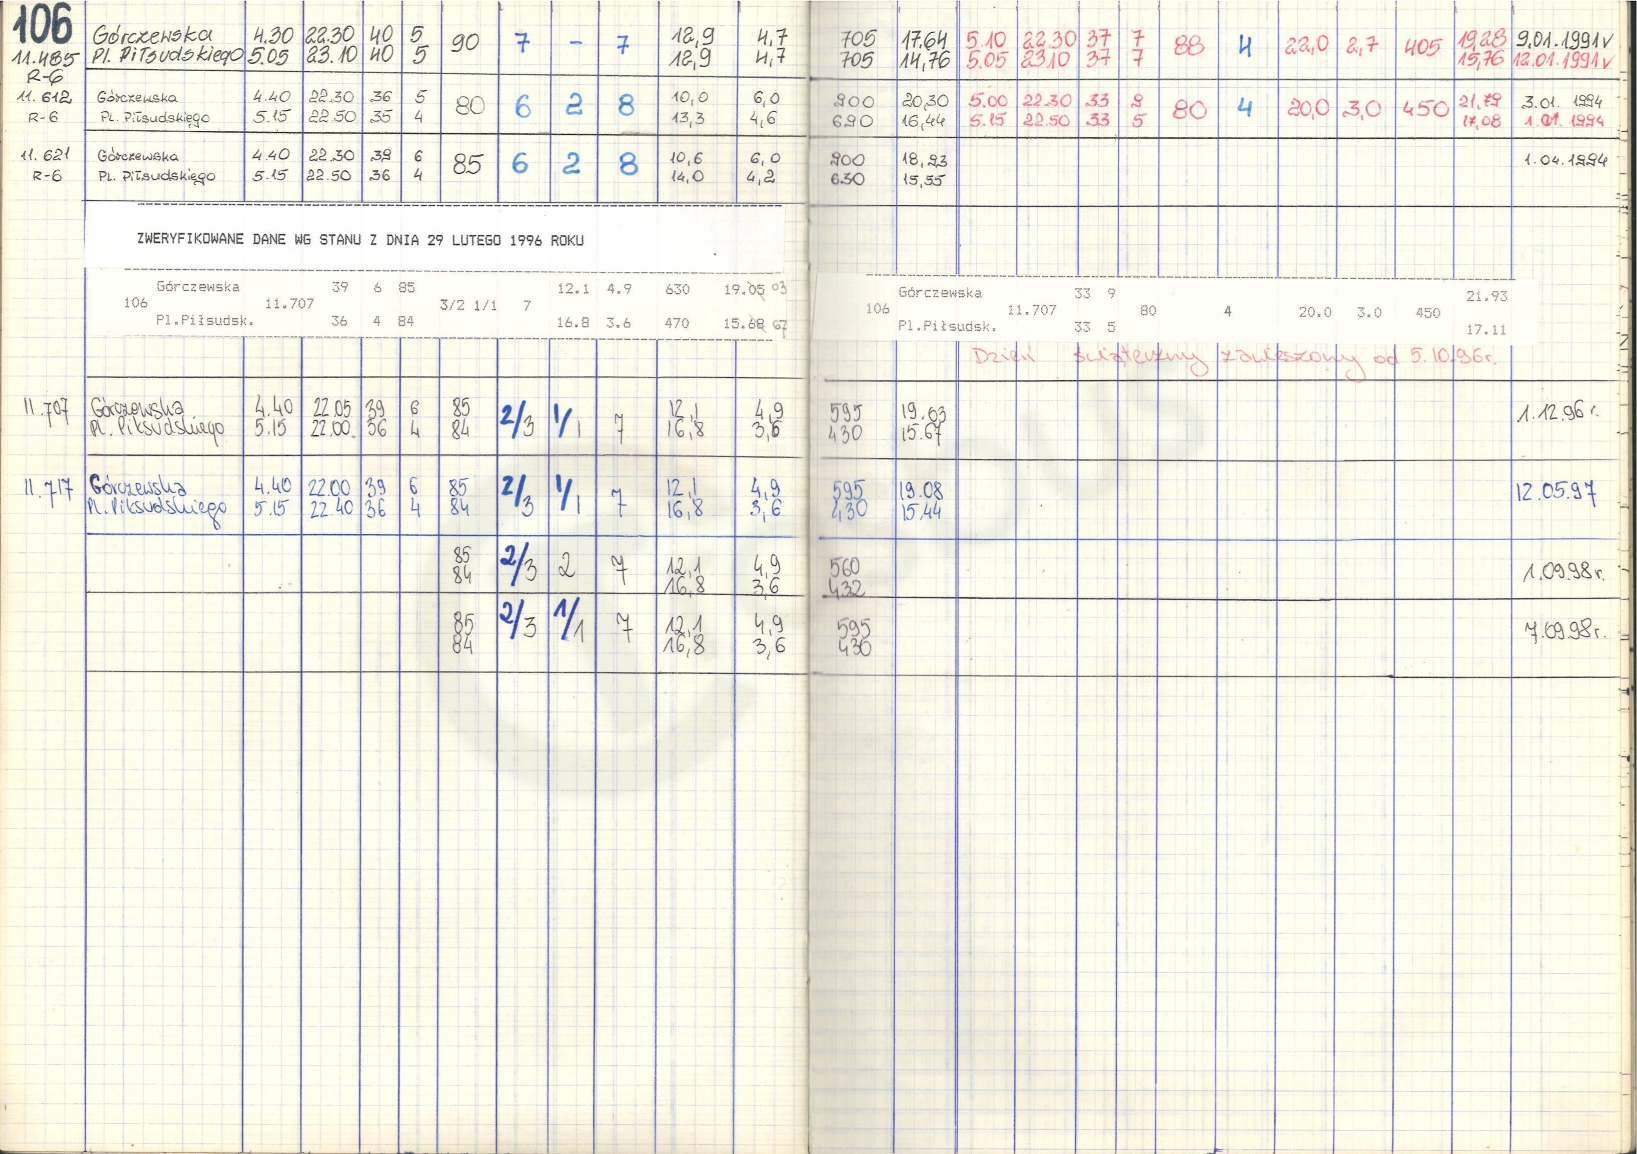 106 Górczewska 4.30 22.30 40 5 90 7 - 7 12,9 4,7 705 17.64 5.10 22.30 37 7 88 4 22,0 2,7 405 19,28 9.01.1991 v
11.485 Pl. Piłsudskiego 5.05 23.10 40 5 12,9 4,7 705 14,76 5.05 23.10 37 7 15,76 12.01.1991 v
R-6
11.612 Górczewska 4.40 22.30 36 5 80 6 2 8 10,0 6,0 900 20,30 5.00 22.30 33 9 80 4 20,0 3,0 450 21,79 3.01.1994
R-6 Pl. Piłsudskiego 5.15 22.50 35 4 13,3 4,6 690 16,44 5.15 22.50 33 5 17,08 1.01.1994
11.621 Górczewska 4.40 22.30 39 6 85 6 2 8 10,6 6,0 900 18,93 1.04.1994
R-6 Pl. Piłsudskiego 5.15 22.50 36 4 14,0 4,2 630 15,55
ZWERYFIKOWANE DANE WG STANU Z DNIA 29 LUTEGO 1996 ROKU
Górczewska 39 6 85 12.1 4.9 630 19.05 03 Górczewska 33 9 21.93
106 11.707 3/2 1/1 7 106 11.707 80 4 20.0 3.0 450
Pl.Piłsudsk. 36 4 84 16.8 3.6 470 15.68 67 Pl.Piłsudsk. 33 5 17.11
Dzień świąteczny zawieszony od 5.10.96r.
11.707 Górczewska 4.40 22.05 39 6 85 2/3 1/1 7 12,1 4,9 595 19.63 1.12.96 r.
Pl. Piłsudskiego 5.15 22.00 36 4 84 16,8 3,6 430 15.67
11.717 Górczewska 4.40 22.00 39 6 85 2/3 1/1 7 12,1 4,9 595 19.08 12.05.97
Pl. Piłsudskiego 5.15 22.40 36 4 84 16,8 3,6 430 15.44
85 2/3 2 7 12,1 4,9 560 1.09.98r.
84 16,8 3,6 432
85 2/3 1/1 7 12,1 4,9 595 7.09.98r.
84 16,8 3,6 430